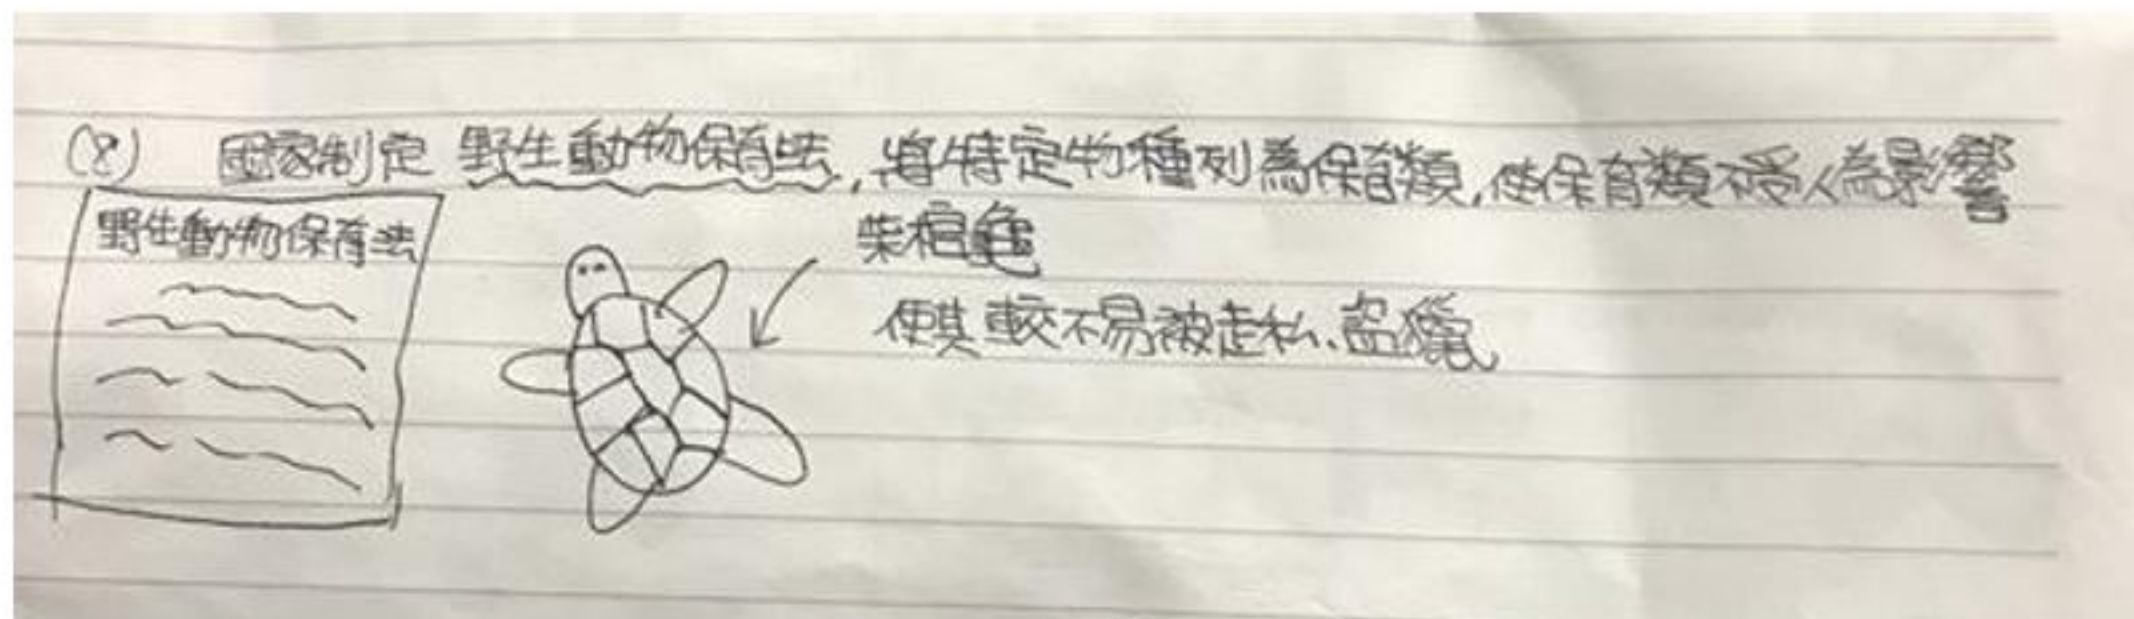 (8) 國家制定 野生動物保育法,將特定物種列為保育類,使保育類不受人為影響
野生動物保育法
柴棺龜
使其較不易被走私、盜獵